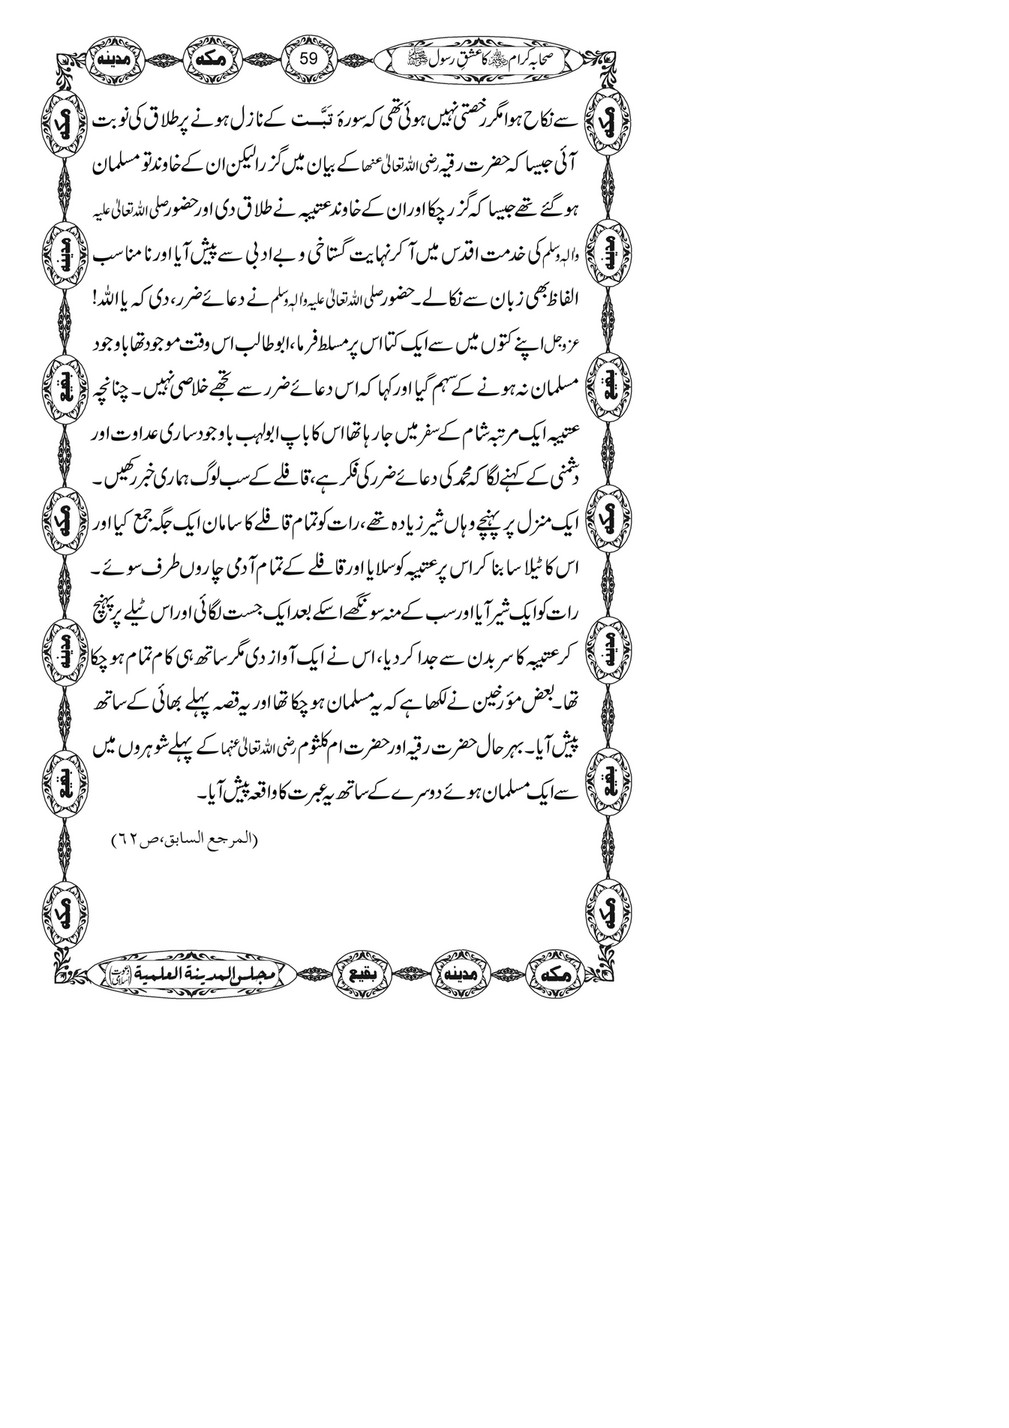 صحابہ کرام کا عشق رسول ﷺ
59
مكه
مدينه
سے نکاح ہوا مگر رخصتی نہیں ہوئی تھی کہ سورۂ تَبَّت کے نازل ہونے پر طلاق کی نوبت
آئی جیسا کہ حضرت رقیہ رضی اللہ تعالیٰ عنھا کے بیان میں گزرا لیکن ان کے خاوند تو مسلمان
ہو گئے تھے جیسا کہ گزر چکا اور ان کے خاوند عتیبہ نے طلاق دی اور حضور صلی اللہ تعالیٰ علیہ
والہٖ وسلم کی خدمت اقدس میں آکر نہایت گستاخی و بے ادبی سے پیش آیا اور نا مناسب
الفاظ بھی زبان سے نکالے۔ حضور صلی اللہ تعالیٰ علیہ والہٖ وسلم نے دعائے ضرر، دی کہ یا اللہ!
عزوجل اپنے کتوں میں سے ایک کتا اس پر مسلط فرما، ابو طالب اس وقت موجود تھا باوجود
مسلمان نہ ہونے کے سہم گیا اور کہا کہ اس دعائے ضرر سے تجھے خلاصی نہیں۔ چنانچہ
عتیبہ ایک مرتبہ شام کے سفر میں جا رہا تھا اس کا باپ ابولہب باوجود ساری عداوت اور
دشمنی کے کہنے لگا کہ محمد کی دعائے ضرر کی فکر ہے، قافلے کے سب لوگ ہماری خبر رکھیں۔
ایک منزل پر پہنچے وہاں شیر زیادہ تھے، رات کو تمام قافلے کا سامان ایک جگہ جمع کیا اور
اس کا ٹیلا سا بنا کر اس پر عتیبہ کو سلایا اور قافلے کے تمام آدمی چاروں طرف سوئے۔
رات کو ایک شیر آیا اور سب کے منہ سونگھے اسکے بعد ایک جست لگائی اور اس ٹیلے پر پہنچ
کر عتیبہ کا سر بدن سے جدا کر دیا، اس نے ایک آواز دی مگر ساتھ ہی کام تمام ہو چکا
تھا۔ بعض مؤرخین نے لکھا ہے کہ یہ مسلمان ہو چکا تھا اور یہ قصہ پہلے بھائی کے ساتھ
پیش آیا۔ بہر حال حضرت رقیہ اور حضرت ام کلثوم رضی اللہ تعالیٰ عنہما کے پہلے شوہروں میں
سے ایک مسلمان ہوئے دوسرے کے ساتھ یہ عبرت کا واقعہ پیش آیا۔
(المرجع السابق، ص ٦٢)
مكه
مدينه
بقيع
مكه
مدينه
بقيع
مكه
مكه
مدينه
بقيع
مكه
مدينه
بقيع
مكه
مكه
مدينه
بقيع
مجلس المدينة العلمية (دعوت اسلامی)